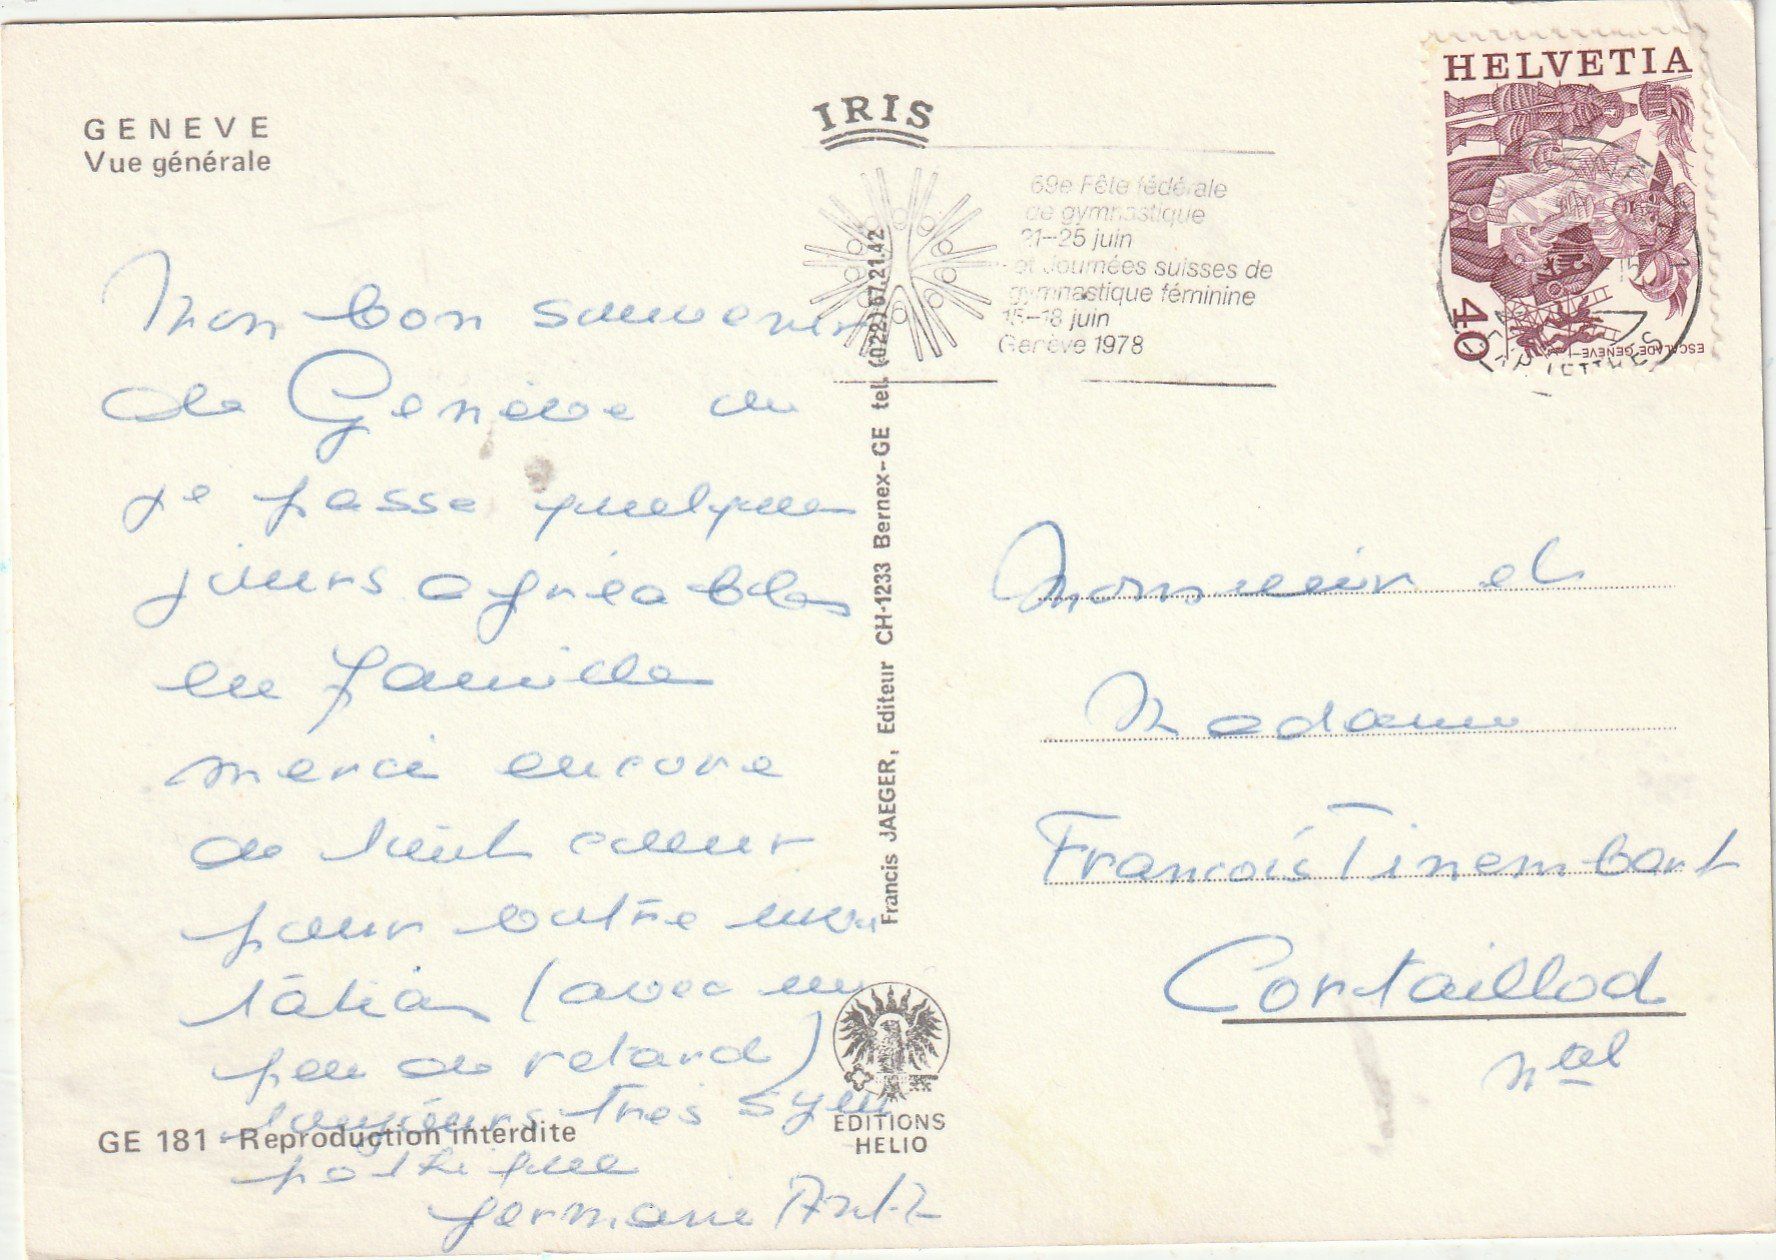 GENEVE
Vue générale
IRIS
69e Fête fédérale
de gymnastique
21-25 juin
et Journées suisses de
gymnastique féminine
15-18 juin
Genève 1978
HELVETIA
40
ESCALADE GENÈVE
Mon bon souvenir
de Genève ou
je passe quelques
jours agréables
en famille
merci encore
de tout cœur
pour votre invi
tation (avec un
peu de retard)
toujours très sym
pathique
Germaine
Francis JAEGER, Editeur CH-1233 Bernex-GE tel. (022) 57.21.42
Monsieur et
Madame
François Tinembart
Cortaillod
Ntel
EDITIONS
HELIO
GE 181 Reproduction interdite